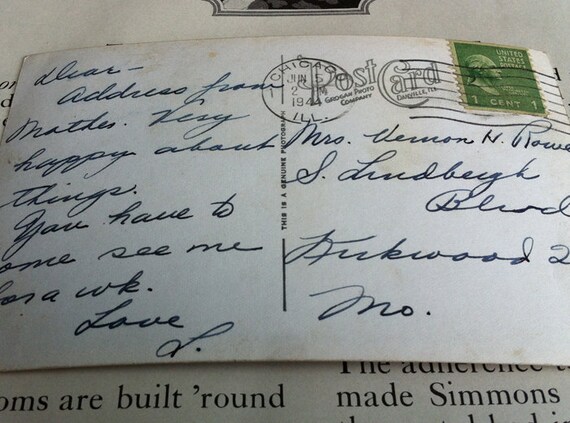 Dear—
Address from
Mother. Very
happy about
things.
You have to
ome see me
for a wk.
Love
L.
THIS IS A GENUINE PHOTOGRAPH
CHICAGO
JUN 5
2 M
1944
ILL.
Post Card
GROGAN PHOTO
COMPANY
DANVILLE, ILL.
UNITED
STATES
POSTAGE
1 CENT 1
Mrs. Vernon H. Rowe
S. Lindbergh
Blvd
Kirkwood 2
Mo.
oms are built 'round
The adherence
made Simmons